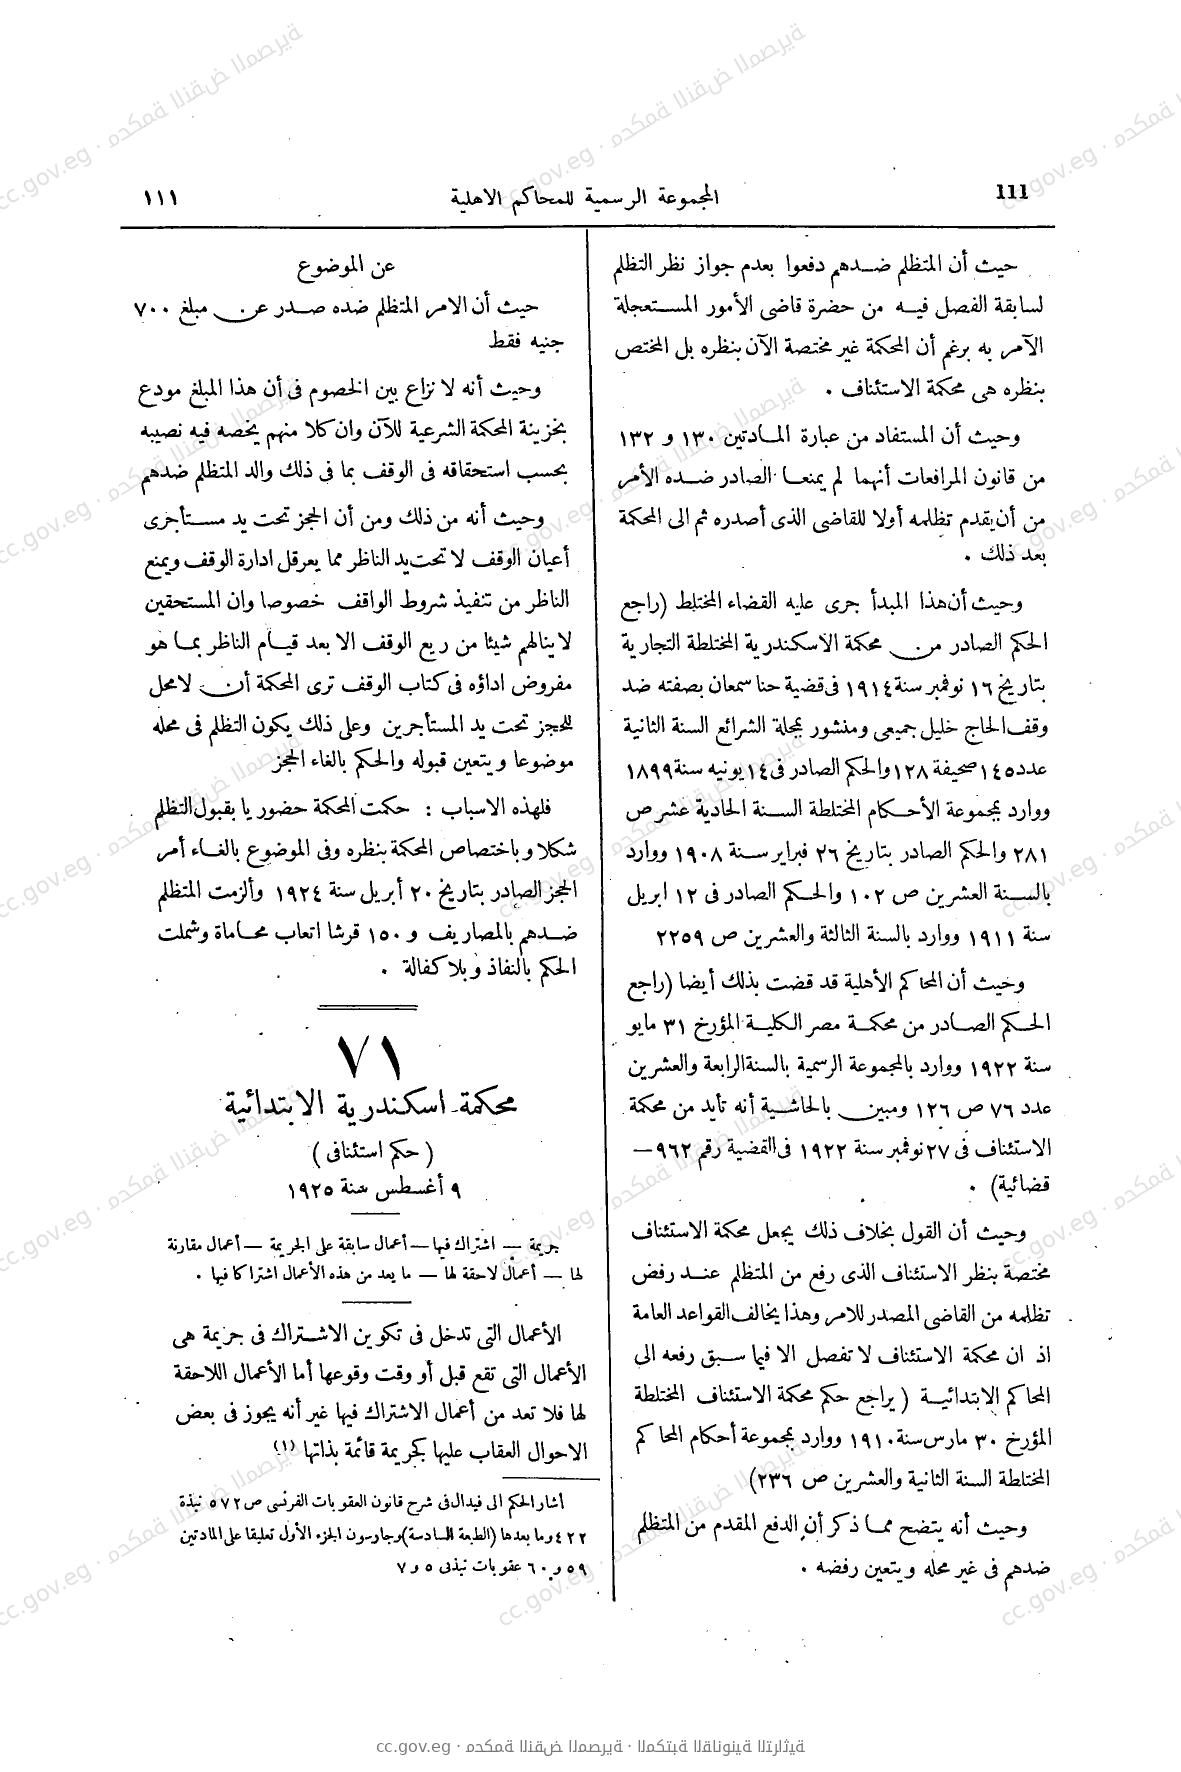 111
المجموعة الرسمية للمحاكم الاهلية
١١١
حيث أن المتظلم ضدهم دفعوا بعدم جواز نظر التظلم
لسابقة الفصل فيه من حضرة قاضى الأمور المستعجلة
الآمر به برغم أن المحكمة غير مختصة الآن بنظره بل المختص
بنظره هى محكمة الاستئناف .
وحيث أن المستفاد من عبارة المادتين ١٣٠ و ١٣٢
من قانون المرافعات أنهما لم يمنعا الصادر ضده الأمر
من أن يقدم تظلمه أولا للقاضى الذى أصدره ثم الى المحكمة
بعد ذلك .
وحيث أن هذا المبدأ جرى عليه القضاء المختلط (راجع
الحكم الصادر من محكمة الاسكندرية المختلطة التجارية
بتاريخ ١٦ نوفمبر سنة ١٩١٤ فى قضية حنا سمعان بصفته ضد
وقف الحاج خليل جميعى ومنشور بمجلة الشرائع السنة الثانية
عدد ١٤٥ صحيفة ١٢٨ والحكم الصادر فى ١٤ يونيه سنة ١٨٩٩
ووارد بمجموعة الأحكام المختلطة السنة الحادية عشر ص
٢٨١ والحكم الصادر بتاريخ ٢٦ فبراير سنة ١٩٠٨ ووارد
بالسنة العشرين ص ١٠٢ والحكم الصادر فى ١٢ ابريل
سنة ١٩١١ ووارد بالسنة الثالثة والعشرين ص ٢٢٥٩
وحيث أن المحاكم الأهلية قد قضت بذلك أيضا (راجع
الحكم الصادر من محكمة مصر الكلية المؤرخ ٣١ مايو
سنة ١٩٢٢ ووارد بالمجموعة الرسمية بالسنة الرابعة والعشرين
عدد ٧٦ ص ١٢٦ ومبين بالحاشية أنه تأيد من محكمة
الاستئناف فى ٢٧ نوفمبر سنة ١٩٢٢ فى القضية رقم ٩٦٢ —
قضائية) .
وحيث أن القول بخلاف ذلك يجعل محكمة الاستئناف
مختصة بنظر الاستئناف الذى رفع من المتظلم عند رفض
تظلمه من القاضى المصدر للامر وهذا يخالف القواعد العامة
اذ ان محكمة الاستئناف لا تفصل الا فيما سبق رفعه الى
المحاكم الابتدائية ( يراجع حكم محكمة الاستئناف المختلطة
المؤرخ ٣٠ مارس سنة ١٩١٠ ووارد بمجموعة أحكام المحاكم
المختلطة السنة الثانية والعشرين ص ٢٣٦)
وحيث أنه يتضح مما ذكر أن الدفع المقدم من المتظلم
ضدهم فى غير محله ويتعين رفضه .
عن الموضوع
حيث أن الامر المتظلم ضده صدر عن مبلغ ٧٠٠
جنيه فقط
وحيث أنه لا نزاع بين الخصوم فى أن هذا المبلغ مودع
بخزينة المحكمة الشرعية للآن وان كلا منهم يخصه فيه نصيبه
بحسب استحقاقه فى الوقف بما فى ذلك والد المتظلم ضدهم
وحيث أنه من ذلك ومن أن الحجز تحت يد مستأجرى
أعيان الوقف لا تحت يد الناظر مما يعرقل ادارة الوقف ويمنع
الناظر من تنفيذ شروط الواقف خصوصا وان المستحقين
لا ينالهم شيئا من ريع الوقف الا بعد قيام الناظر بما هو
مفروض اداؤه فى كتاب الوقف ترى المحكمة أن لا محل
للحجز تحت يد المستأجرين وعلى ذلك يكون التظلم فى محله
موضوعا ويتعين قبوله والحكم بالغاء الحجز
فلهذه الاسباب : حكمت المحكمة حضوريا بقبول التظلم
شكلا وباختصاص المحكمة بنظره وفى الموضوع بالغاء أمر
الحجز الصادر بتاريخ ٢٠ أبريل سنة ١٩٢٤ وألزمت المتظلم
ضدهم بالمصاريف و ١٥٠ قرشا اتعاب محاماة وشملت
الحكم بالنفاذ وبلا كفالة .
٧١
محكمة اسكندرية الابتدائية
( حكم استئنافى )
٩ أغسطس سنة ١٩٢٥
جريمة — اشتراك فيها — أعمال سابقة على الجريمة — أعمال مقارنة
لها — أعمال لاحقة لها — ما يعد من هذه الأعمال اشتراكا فيها .
الأعمال التى تدخل فى تكوين الاشتراك فى جريمة هى
الأعمال التى تقع قبل أو وقت وقوعها أما الأعمال اللاحقة
لها فلا تعد من أعمال الاشتراك فيها غير أنه يجوز فى بعض
الاحوال العقاب عليها كجريمة قائمة بذاتها (١)
أشار الحكم الى فيدال فى شرح قانون العقوبات الفرنسى ص ٥٧٢ نبذة
٤٢٢ وما بعدها (الطبعة السادسة) وجارسون الجزء الأول تعليقا على المادتين
٥٩ و ٦٠ عقوبات نبذتى ٥ و ٧
cc.gov.eg · محكمة النقض المصرية · المكتبة القانونية التراثية